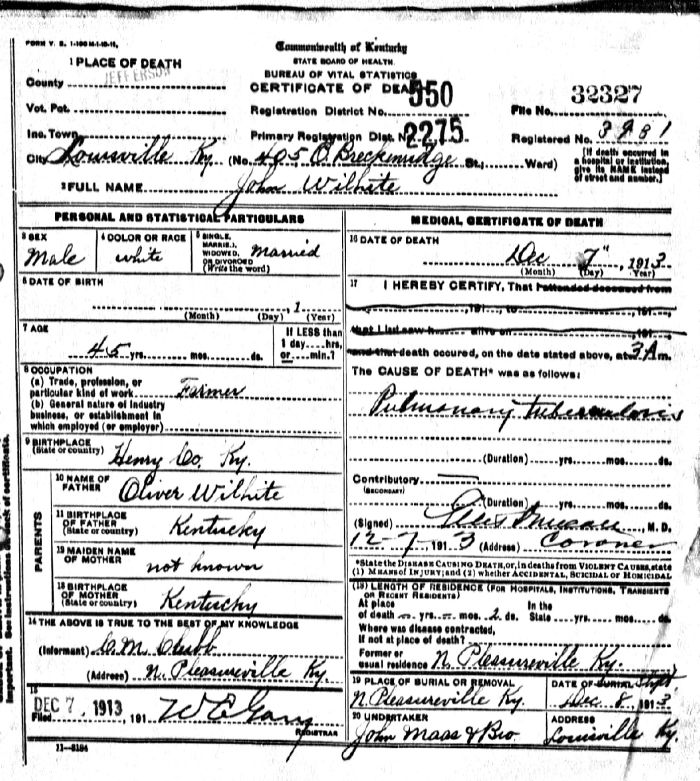 FORM V. S. 1-100 M-1-10-11,
Commonwealth of Kentucky
STATE BOARD OF HEALTH.
BUREAU OF VITAL STATISTICS
CERTIFICATE OF DEATH
1 PLACE OF DEATH
County JEFFERSON
Vot. Pct.
Inc. Town
City Louisville Ky (No. 405 E Breckenridge St.; Ward)
Registration District No. 550
Primary Registration Dist. No. 2275
File No. 32327
Registered No. 3281
[If death occurred in a hospital or institution, give its NAME instead of street and number.]
2 FULL NAME John Wilhite
PERSONAL AND STATISTICAL PARTICULARS
3 SEX Male
4 COLOR OR RACE white
5 SINGLE, MARRIED, WIDOWED, OR DIVORCED (Write the word) Married
6 DATE OF BIRTH
, 1
(Month) (Day) (Year)
7 AGE
45 yrs. mos. ds.
If LESS than 1 day hrs. or min.?
8 OCCUPATION
(a) Trade, profession, or particular kind of work Farmer
(b) General nature of industry business, or establishment in which employed (or employer)
9 BIRTHPLACE (State or country) Henry Co. Ky.
PARENTS
10 NAME OF FATHER Oliver Wilhite
11 BIRTHPLACE OF FATHER (State or country) Kentucky
12 MAIDEN NAME OF MOTHER not known
13 BIRTHPLACE OF MOTHER (State or country) Kentucky
14 THE ABOVE IS TRUE TO THE BEST OF MY KNOWLEDGE
(Informant) C.M. Chubb
(Address) N. Pleasureville Ky.
15
Filed DEC 7, 1913, 191
REGISTRAR
11-3184
MEDICAL CERTIFICATE OF DEATH
16 DATE OF DEATH
Dec 7", 1913
(Month) (Day) (Year)
17 I HEREBY CERTIFY, That I attended deceased from
, 191 , to , 191 ,
that I last saw h alive on , 191 ,
and that death occured, on the date stated above, at 3 A m.
The CAUSE OF DEATH* was as follows:
Pulmonary tuberculosis
(Duration) yrs. mos. ds.
Contributory
(SECONDARY)
(Duration) yrs. mos. ds.
(Signed) M. D.
12-7, 1913 (Address) Coroner
*State the DISEASE CAUSING DEATH, or, in deaths from VIOLENT CAUSES, state
(1) MEANS OF INJURY; and (2) whether ACCIDENTAL, SUICIDAL OR HOMICIDAL
(18) LENGTH OF RESIDENCE (FOR HOSPITALS, INSTITUTIONS, TRANSIENTS OR RECENT RESIDENTS)
At place of death yrs. mos. 2 ds. In the State yrs. mos. ds.
Where was disease contracted, If not at place of death?
Former or usual residence N. Pleasureville Ky.
19 PLACE OF BURIAL OR REMOVAL
N. Pleasureville Ky.
DATE OF BURIAL
Dec 8, 1913
20 UNDERTAKER
John Maas & Bro
ADDRESS
Louisville Ky.